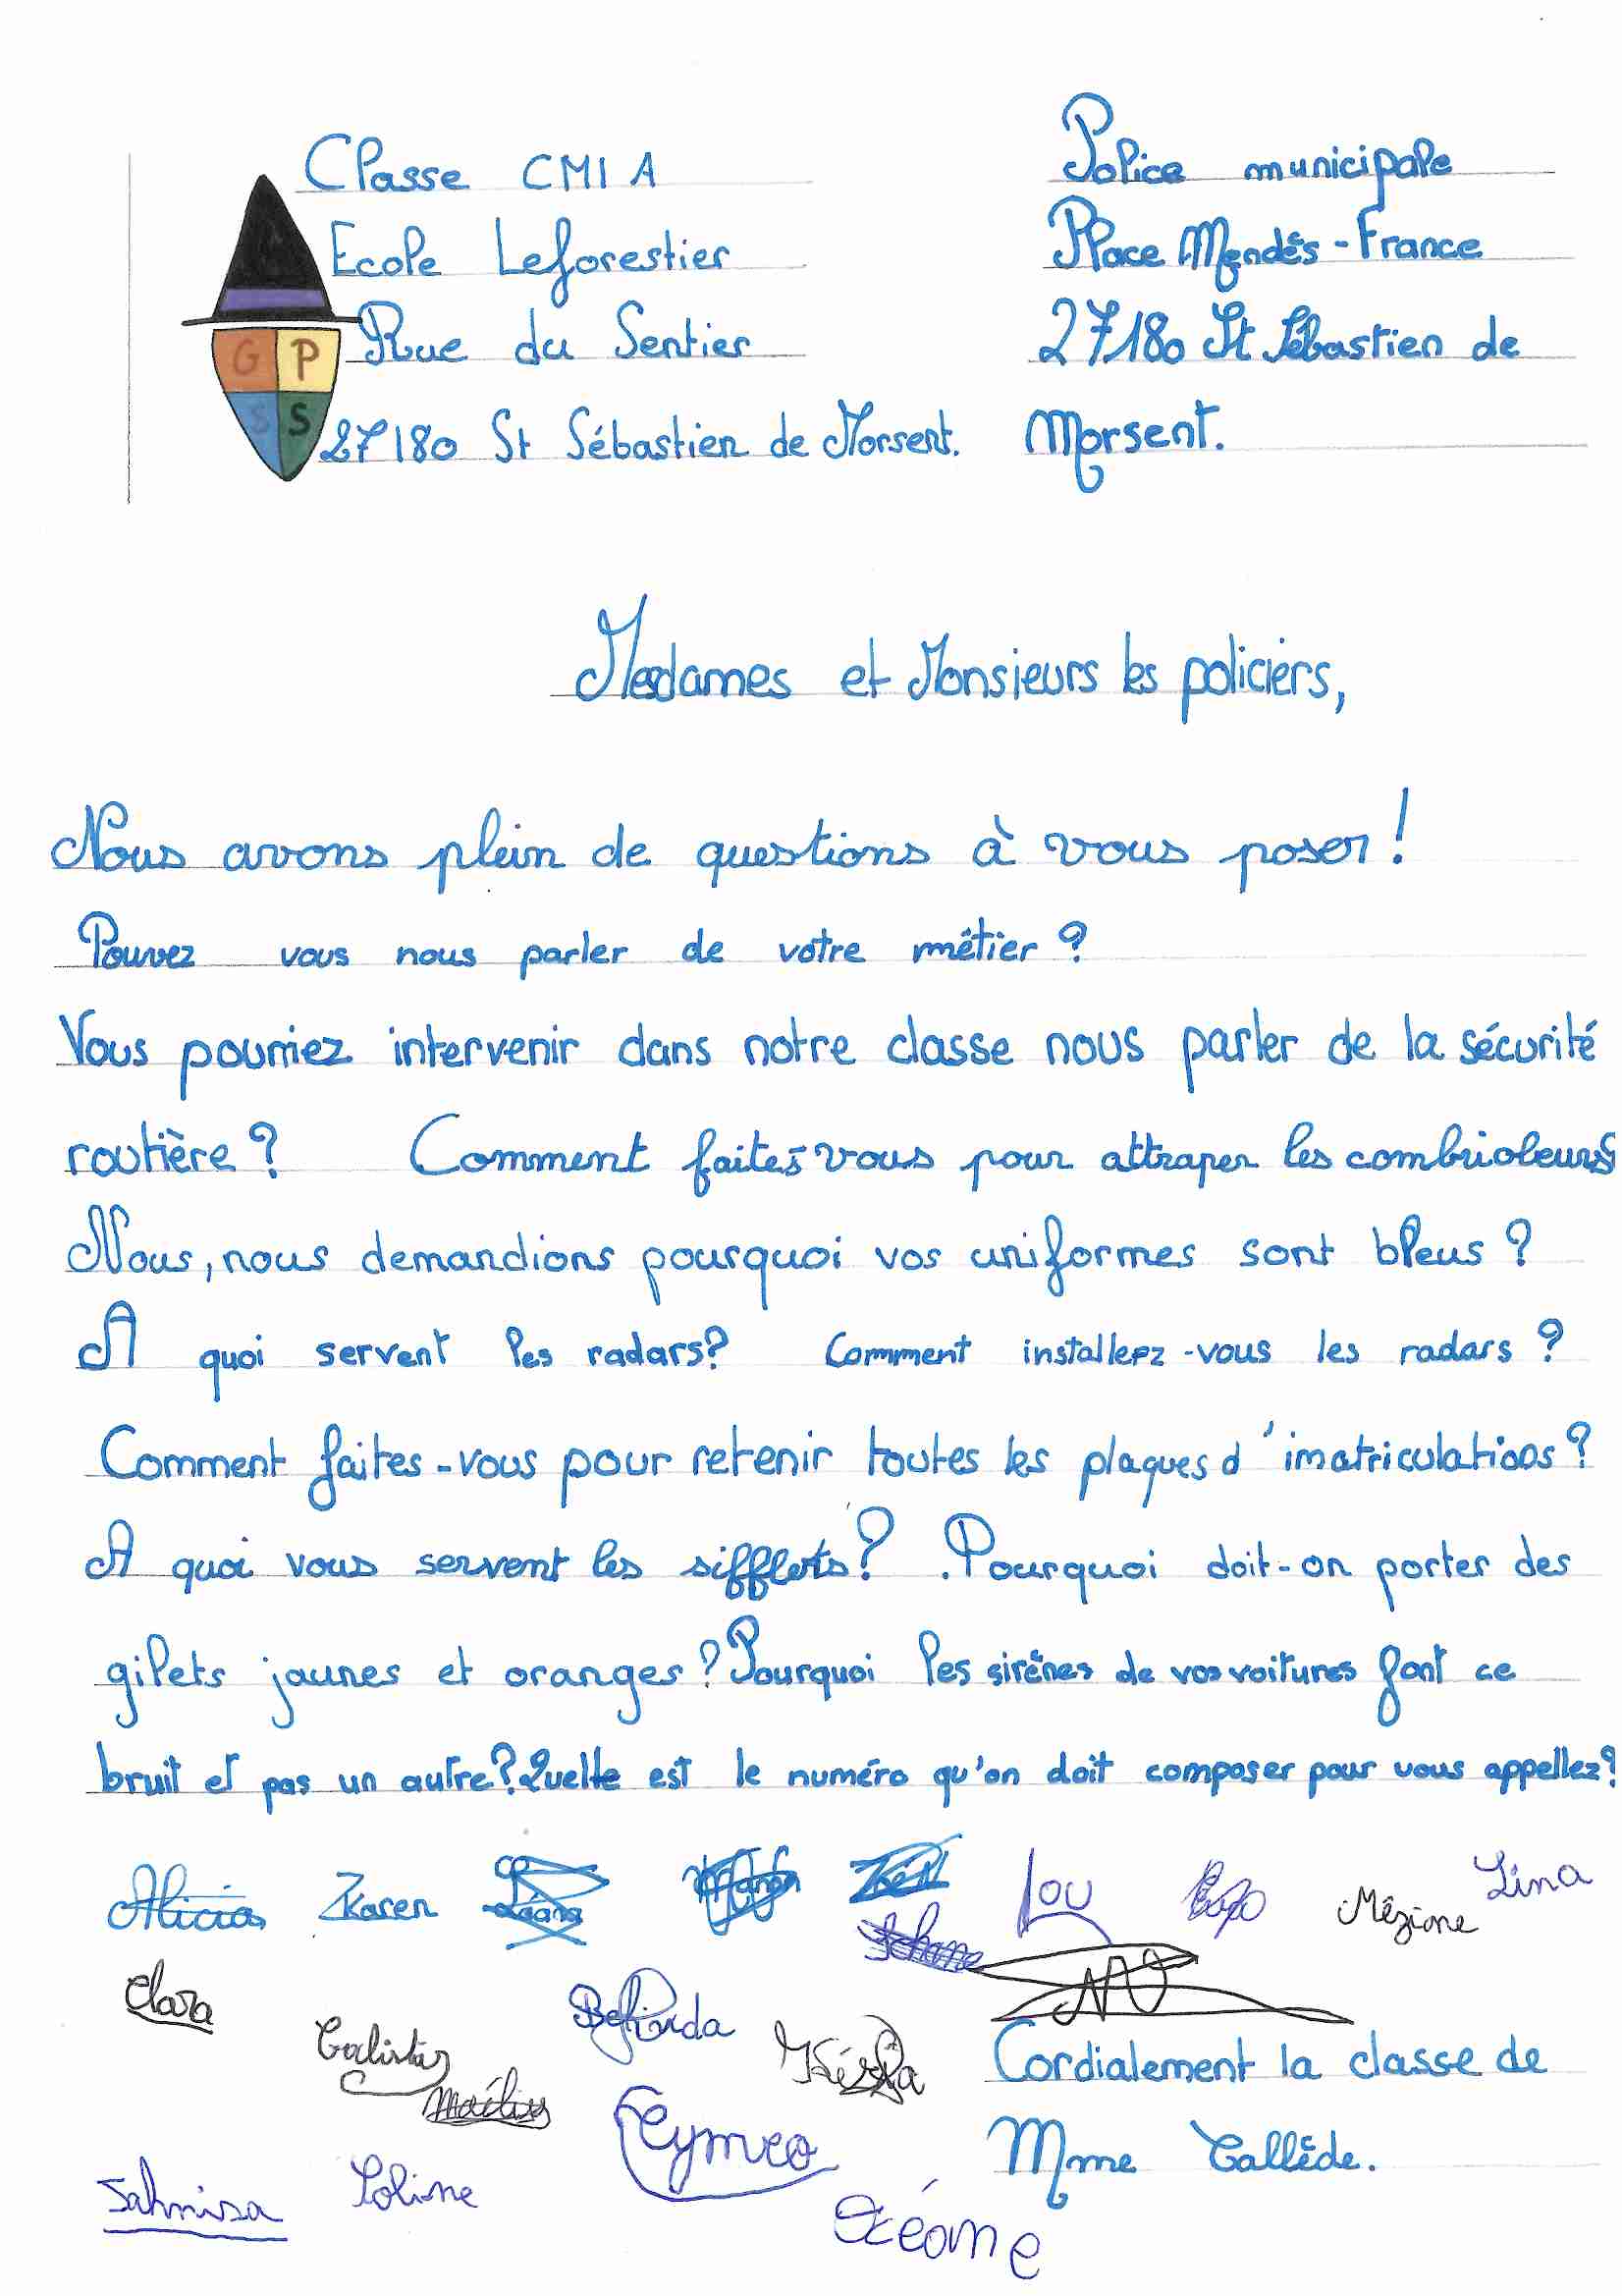 Classe CM1 A
Ecole Leforestier
Rue du Sentier
27180 St Sébastien de Morsent.
G P
S S
Police municipale
Place Mendès-France
27180 St Sébastien de
Morsent.
Mesdames et Monsieurs les policiers,
Nous avons plein de questions à vous poser !
Pouvez vous nous parler de votre métier ?
Vous pourriez intervenir dans notre classe nous parler de la sécurité
routière ? Comment faites vous pour attraper les combrioleurs
Nous, nous demandions pourquoi vos uniformes sont bleus ?
A quoi servent les radars? Comment installeez-vous les radars ?
Comment faites-vous pour retenir toutes les plaques d'imatriculations ?
A quoi vous servent les sifflets ? .Pourquoi doit-on porter des
gilets jaunes et oranges ? Pourquoi les sirènes de vos voitures font ce
bruit et pas un autre ? Quelle est le numéro qu'on doit composer pour vous appellez ?
Alicia Karen Lou Mézione Lina
Clara
Calista Belinda
Maélys Cordialement la classe de
Eymeo Mme Callède.
Sahnisa Soline
Océane